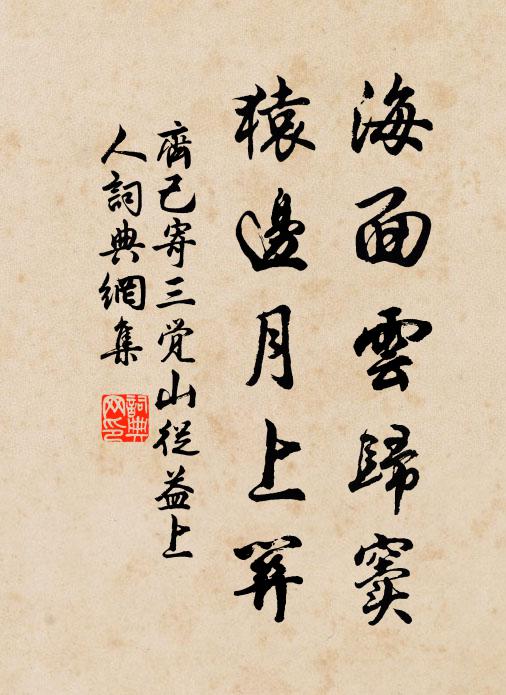 海面雲歸竇
猿邊月上
齊己寄三觉山從益上
人詞典網集
詞典
网印